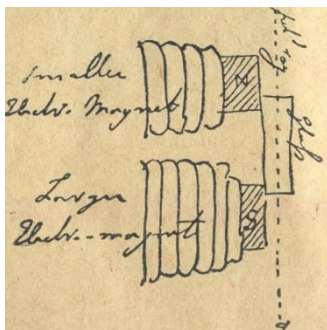 Smaller
Electr. Magnet
N
glass
Larger
Electr.-magnet
S